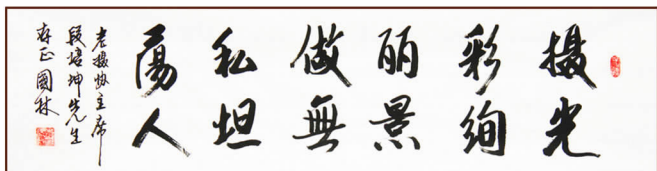 摄光
彩绚
丽景
做無
私坦
荡人
老摄协主席
段培坤先生
存正國林